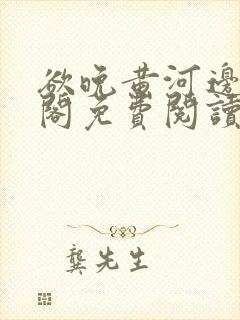 欲晚黄河邊
閣免費閱讀
龔先生